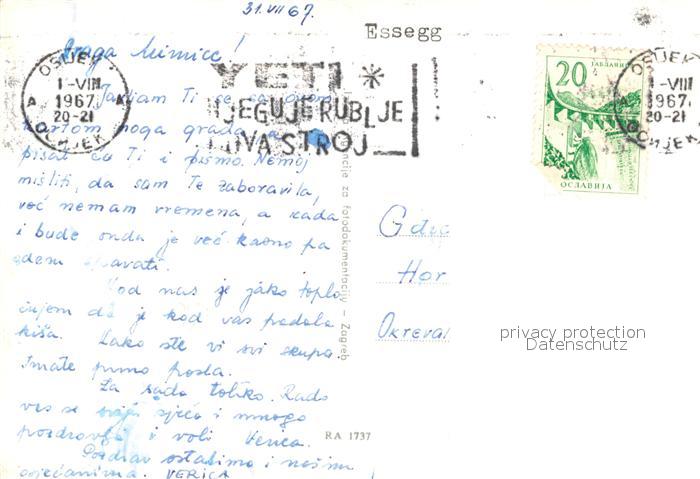 31.VII 67.
Essegg
Draga Mimice!
YETI *
NJEGUJE RUBLJE
I ČUVA STROJ
OSIJEK
1-VIII
1967
20-21
ОСИЈЕК
20
ЈАБЛАНИ
ОСЛАВИЈА
OSIJEK
1-VIII
1967.
20-21
ОСИЈЕК
Javljam Ti se sa ovom
kartom moga grada, a
pisat ću Ti i pismo. Nemoj
misliti, da sam Te zaboravila,
već nemam vremena, a kada
i bude onda je već kasno pa
idem spavati.
Kod nas je jako toplo
čujem da je kod vas padala
kiša. Kako ste vi svi skupa.
Imate puno posla.
Za sada toliko. Rado
vas se svija sjeća i mnogo
pozdravlja i voli Verica.
Pozdrav ostalima i našim
VERICA
ncije za fotodokumentaciju — Zagreb
RA 1737
Hor
privacy protection
Datenschutz